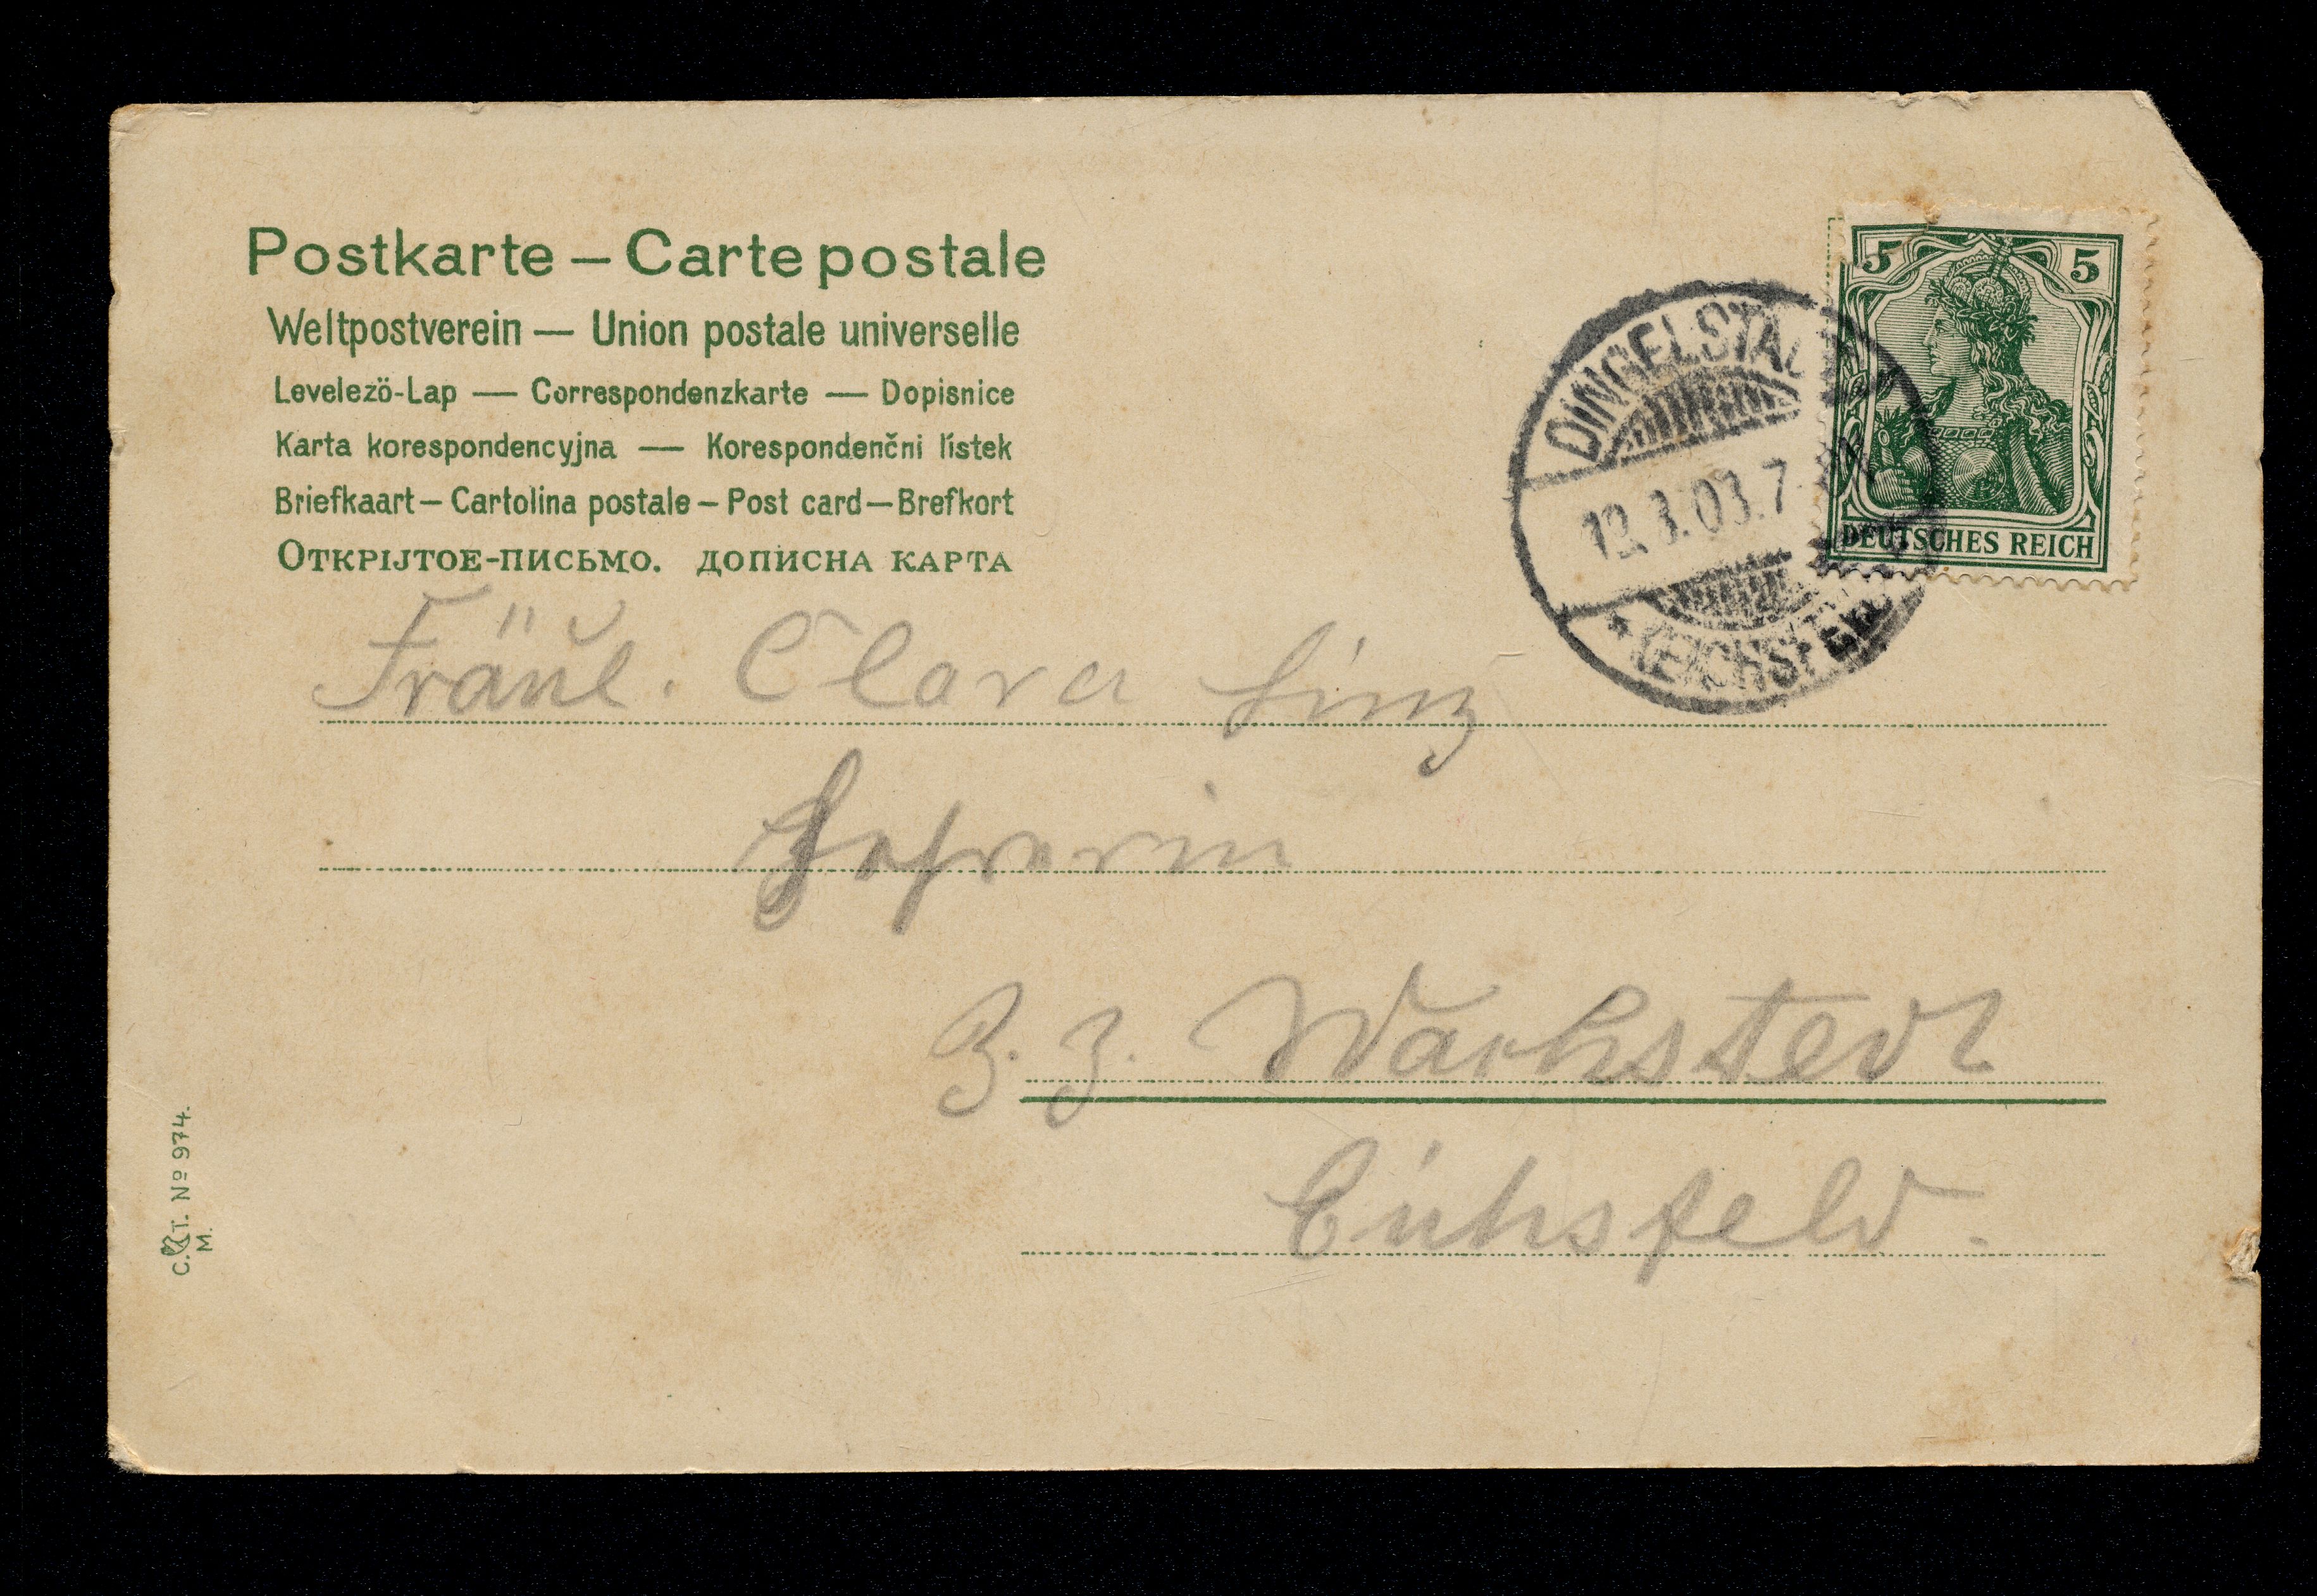 Postkarte – Carte postale
Weltpostverein — Union postale universelle
Levelezö-Lap — Correspondenzkarte — Dopisnice
Karta korespondencyjna — Korespondenčni lístek
Briefkaart – Cartolina postale – Post card – Brefkort
Открıɪтое-письмо. дописна карта
5 5
DEUTSCHES REICH
DINGELSTÄDT
12.3.03.7-
* EICHSFELD
Fräul. Clara
z. Z. Wachstedt
Eichsfeld.
C. T. № 974.
M.